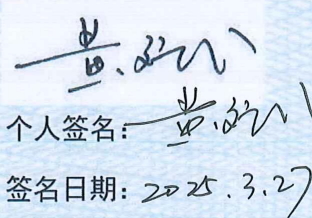 黄
个人签名：黄
签名日期：2025.3.27